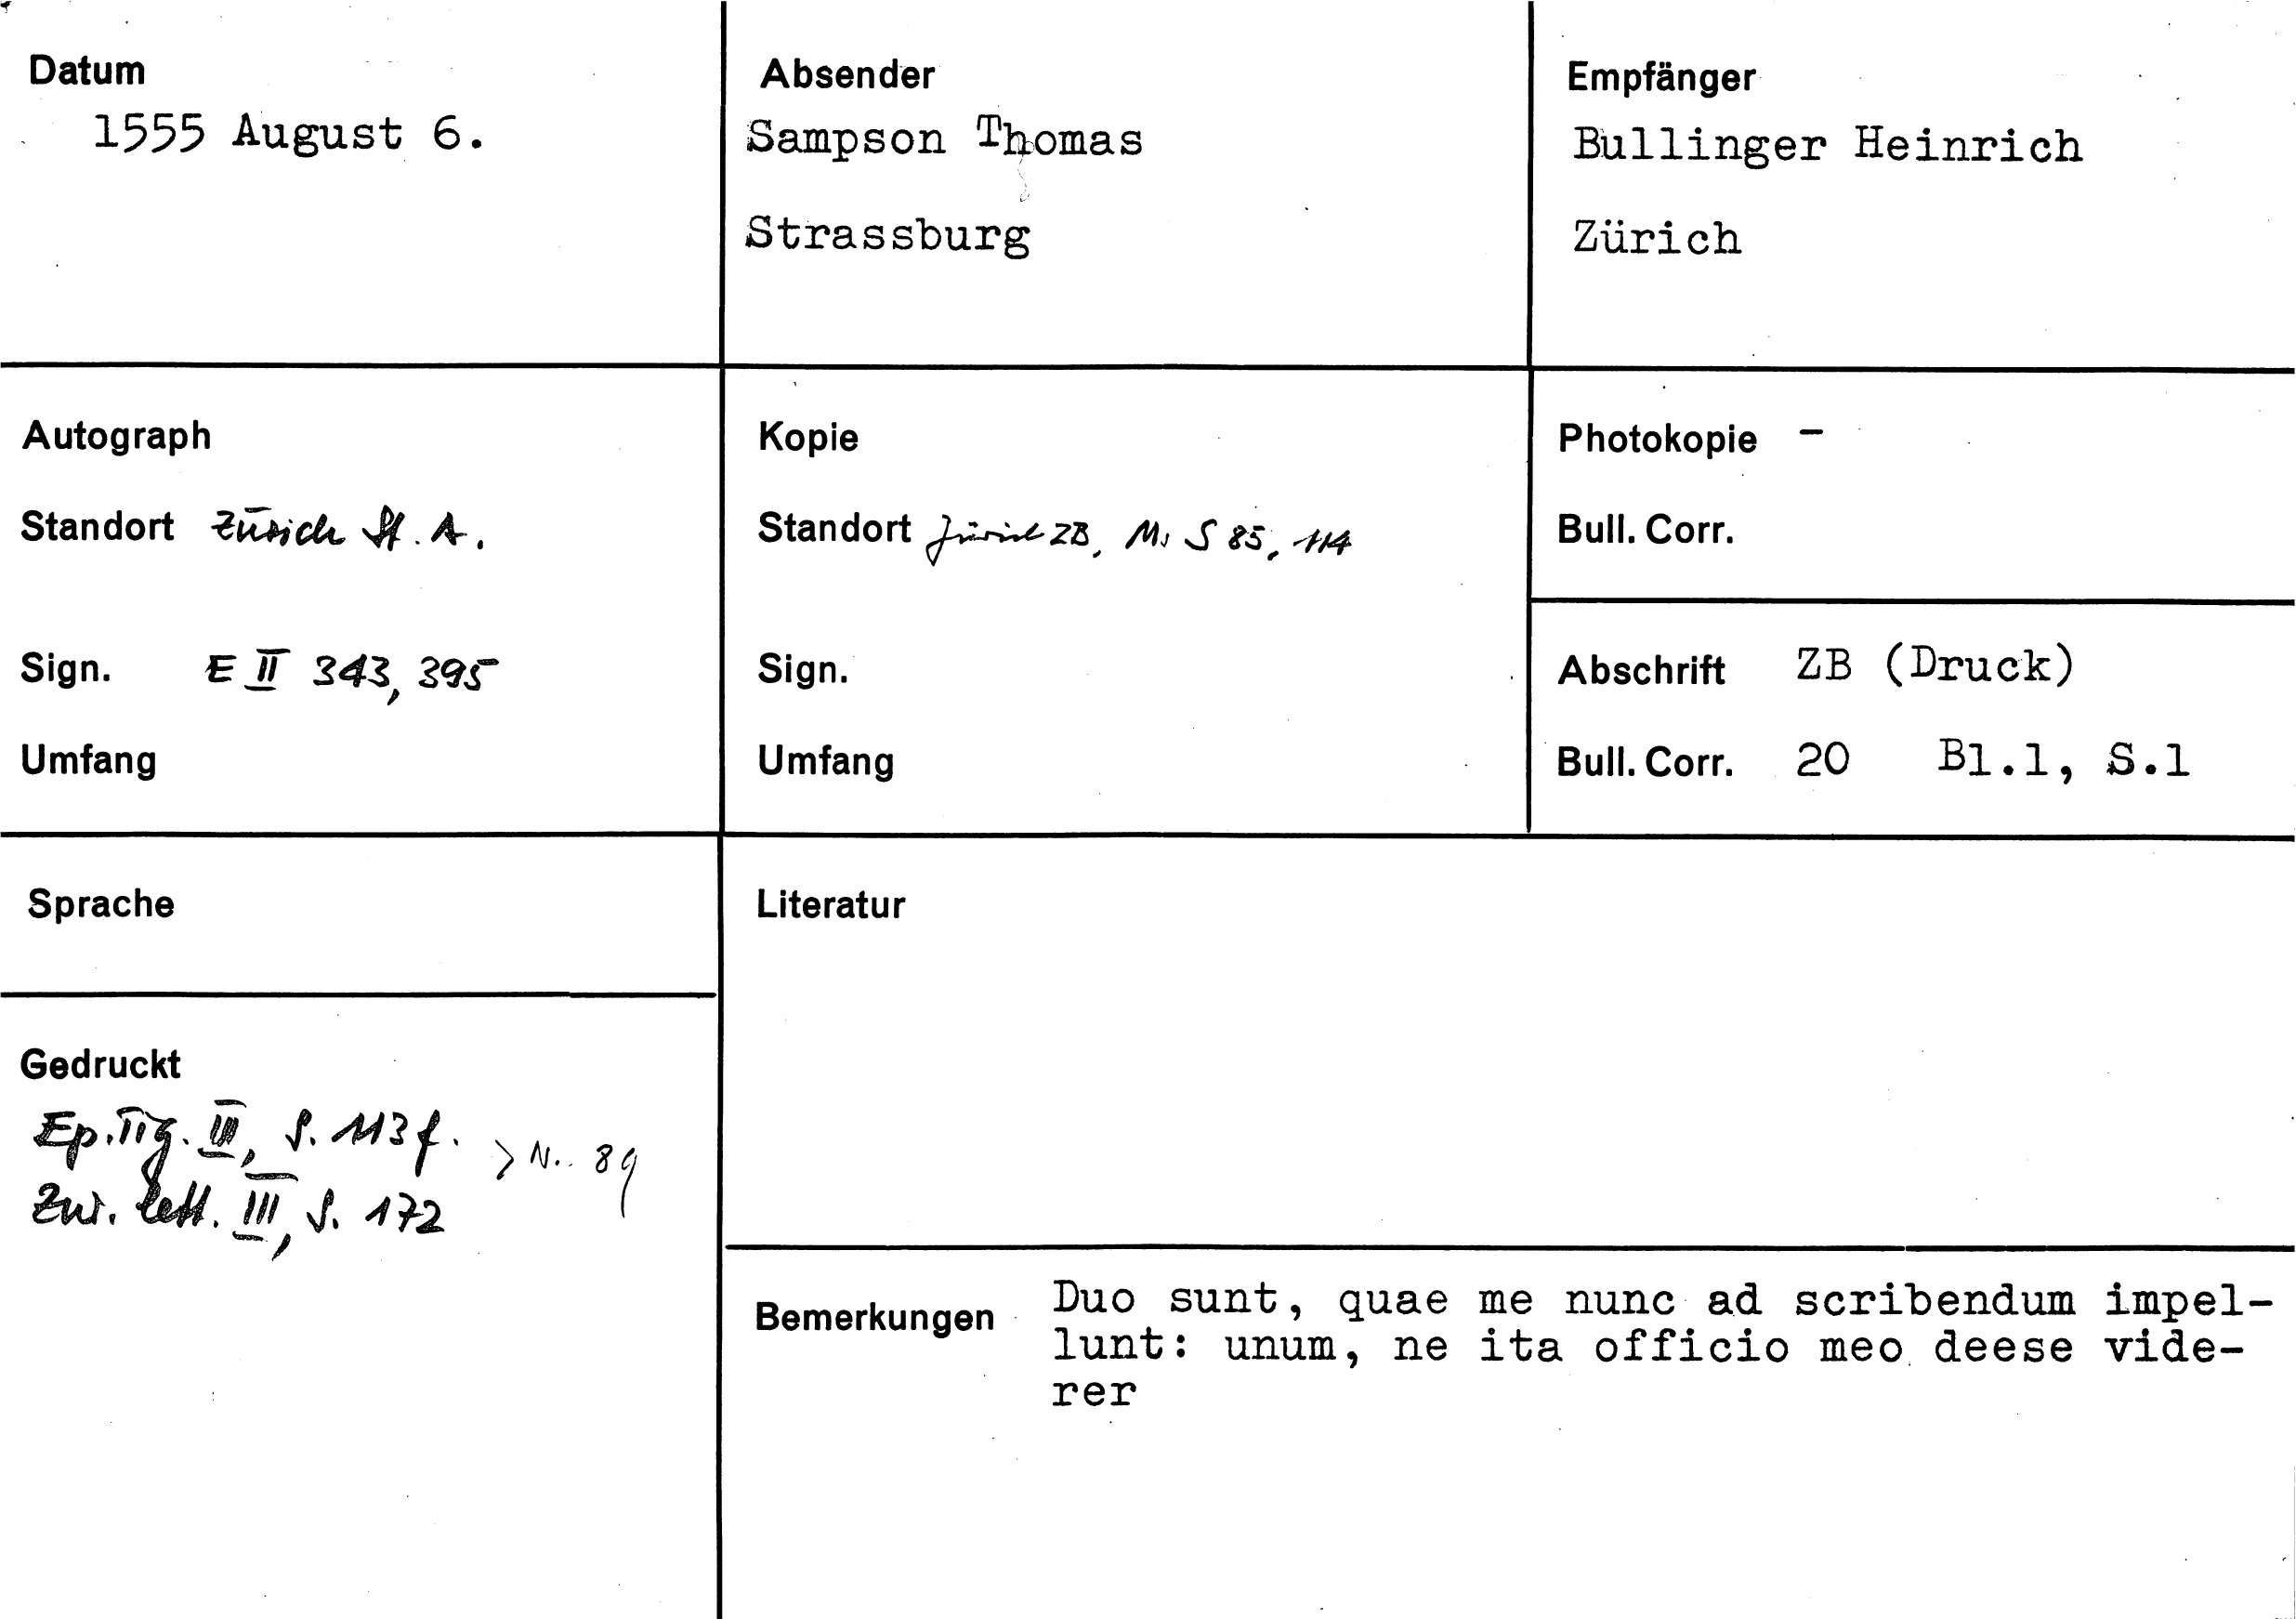 Datum
1555 August 6.
Absender
Sampson Thomas
Strassburg
Empfänger
Bullinger Heinrich
Zürich
Autograph
Standort Zürich St. A.
Sign. E II 343, 395
Umfang
Kopie
Standort Zürich ZB, Ms S 85, 114
Sign.
Umfang
Photokopie -
Bull. Corr.
Abschrift ZB (Druck)
Bull. Corr. 20 Bl.1, S.1
Sprache
Gedruckt
Ep. Tig. III, S. 113 f.
> N.. 89
Zur. Lett. III, S. 172
Literatur
Bemerkungen Duo sunt, quae me nunc ad scribendum impel-
lunt: unum, ne ita officio meo deese vide-
rer